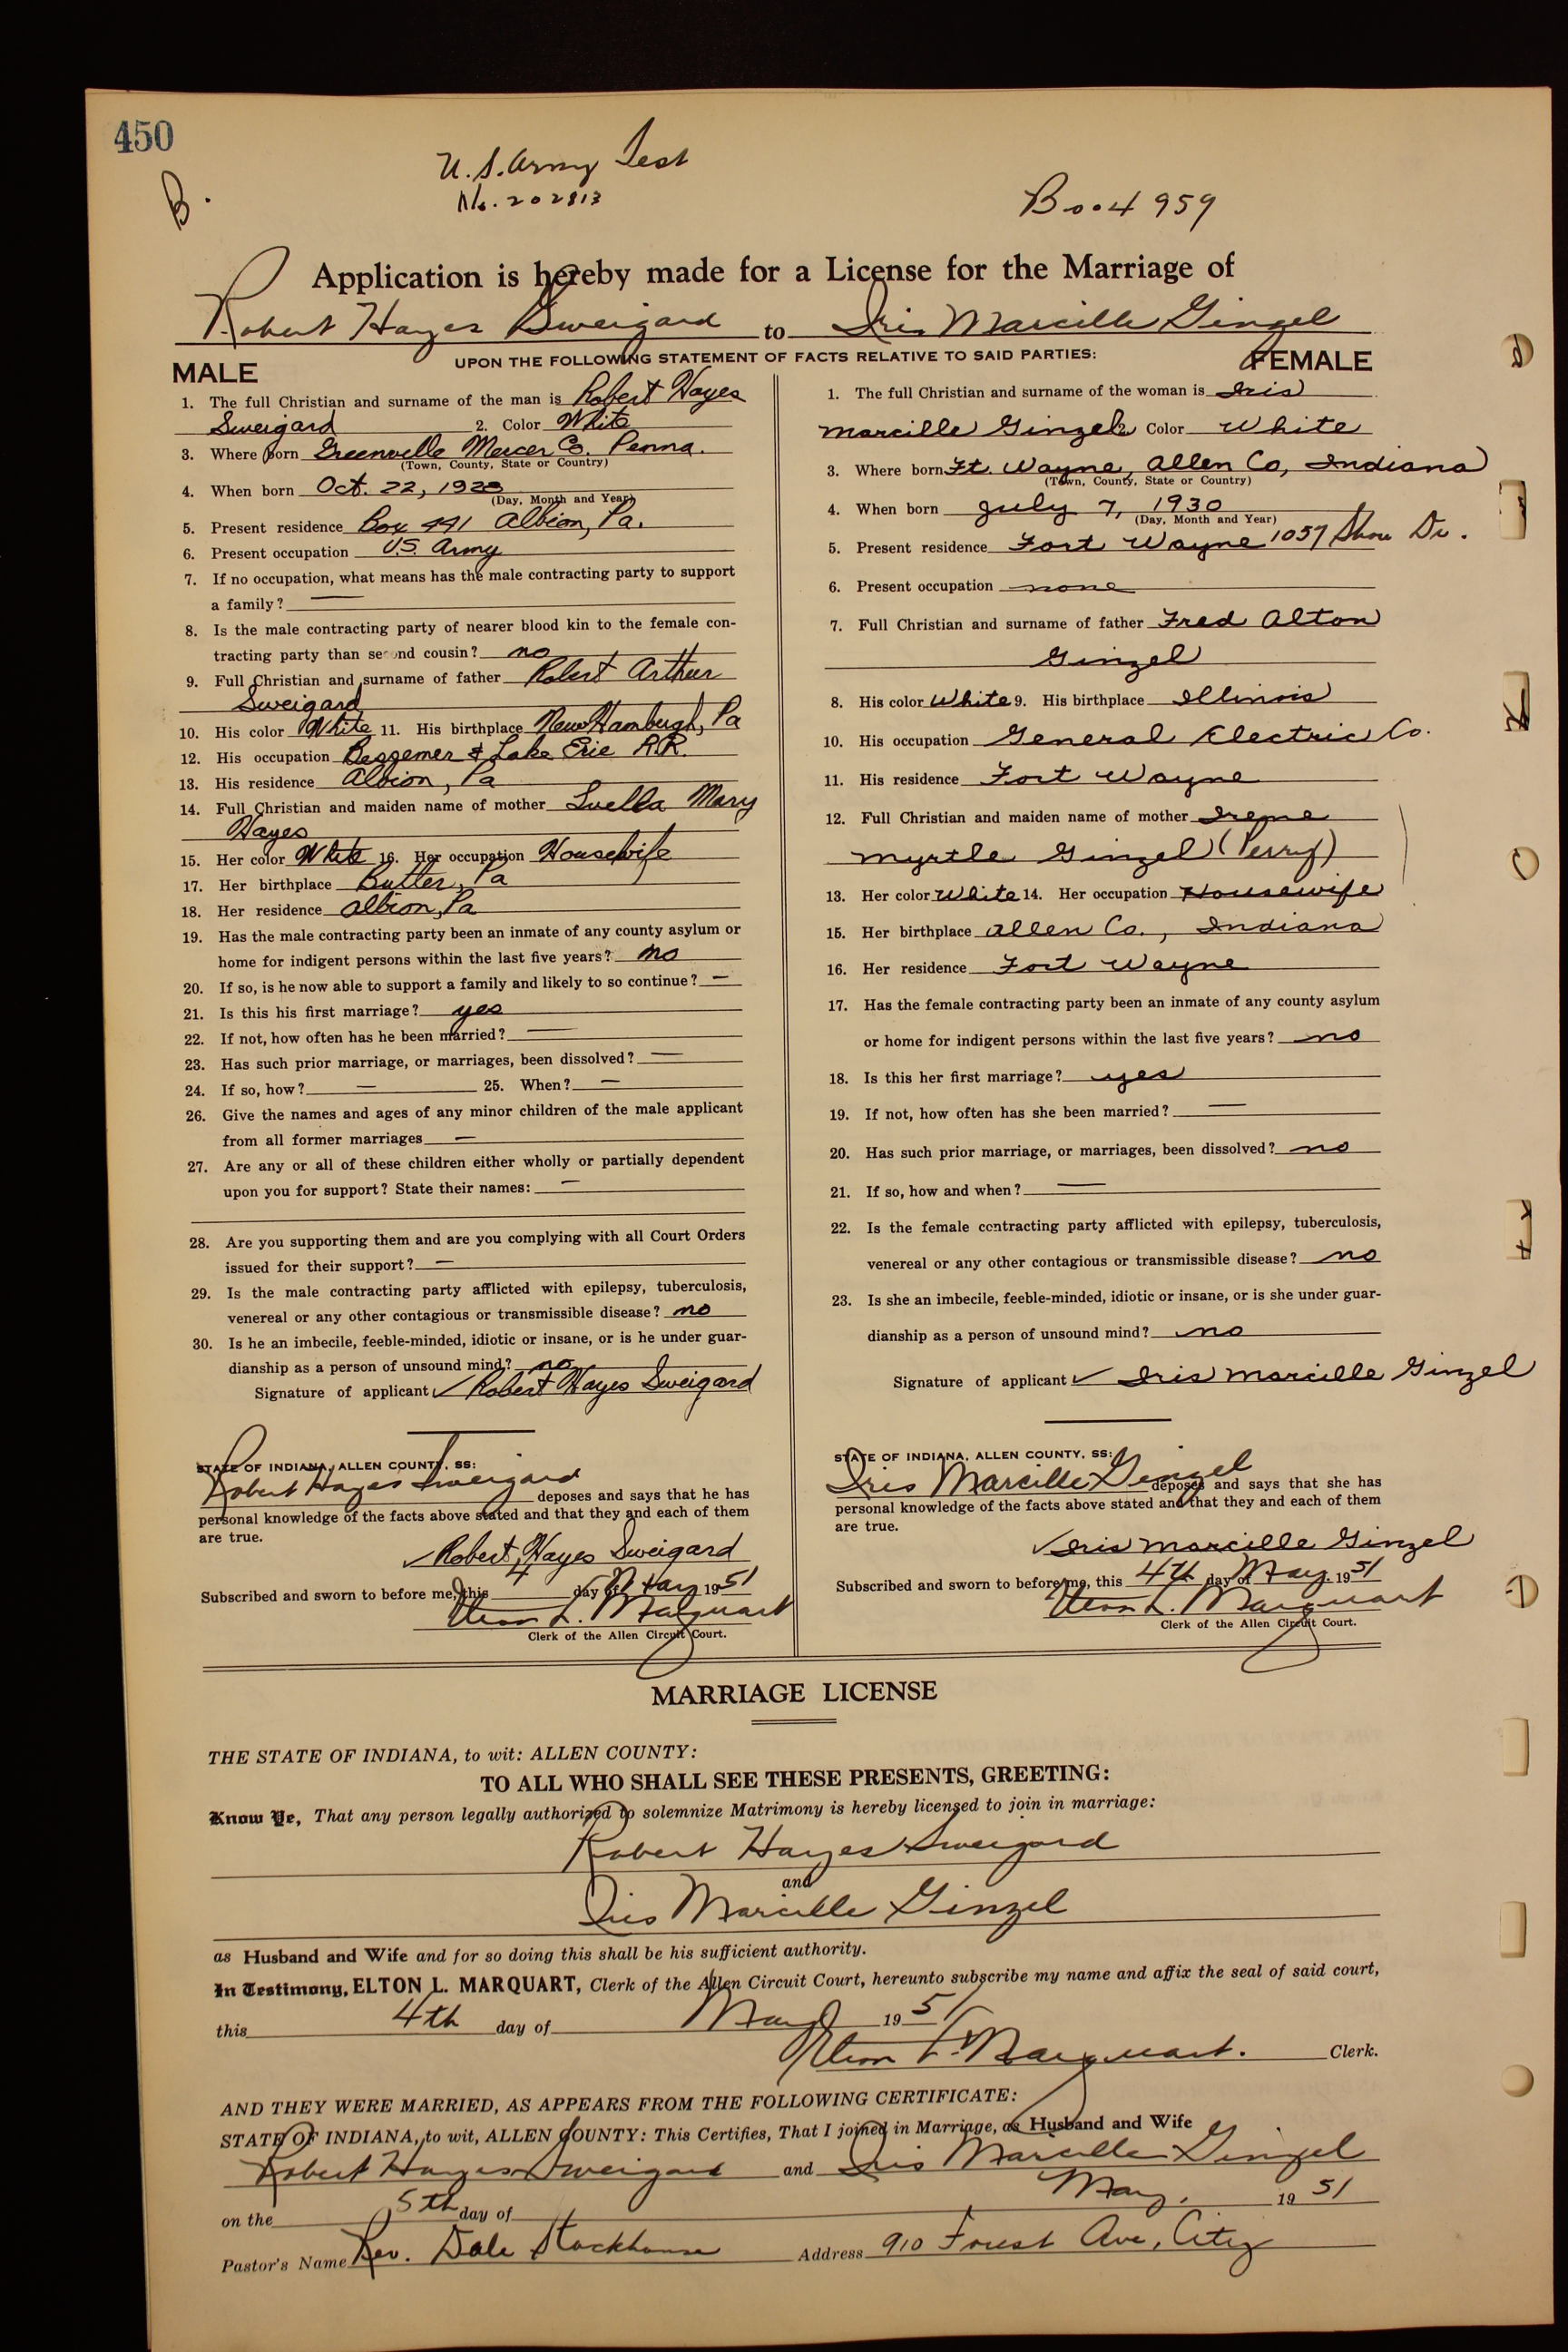 450
B.
U.S. Army Test
No. 202813
Boo4959
Application is hereby made for a License for the Marriage of
Robert Hayes Sweigard to Iris Marcille Ginzel
UPON THE FOLLOWING STATEMENT OF FACTS RELATIVE TO SAID PARTIES:
MALE
1. The full Christian and surname of the man is Robert Hayes
Sweigard 2. Color White
3. Where born Greenville Mercer Co. Penna.
(Town, County, State or Country)
4. When born Oct. 22, 1928
(Day, Month and Year)
5. Present residence Box 441 Albion, Pa.
6. Present occupation U.S. Army
7. If no occupation, what means has the male contracting party to support
a family? —
8. Is the male contracting party of nearer blood kin to the female con-
tracting party than second cousin? no
9. Full Christian and surname of father Robert Arthur
Sweigard
10. His color White 11. His birthplace New Hamburgh, Pa
12. His occupation Beggemer & Lake Erie R.R.
13. His residence Albion, Pa
14. Full Christian and maiden name of mother Luella Mary
Hayes
15. Her color White 16. Her occupation Housewife
17. Her birthplace Butler, Pa
18. Her residence Albion, Pa
19. Has the male contracting party been an inmate of any county asylum or
home for indigent persons within the last five years? no
20. If so, is he now able to support a family and likely to so continue? —
21. Is this his first marriage? yes
22. If not, how often has he been married? —
23. Has such prior marriage, or marriages, been dissolved? —
24. If so, how? — 25. When? —
26. Give the names and ages of any minor children of the male applicant
from all former marriages —
27. Are any or all of these children either wholly or partially dependent
upon you for support? State their names: —
28. Are you supporting them and are you complying with all Court Orders
issued for their support? —
29. Is the male contracting party afflicted with epilepsy, tuberculosis,
venereal or any other contagious or transmissible disease? no
30. Is he an imbecile, feeble-minded, idiotic or insane, or is he under guar-
dianship as a person of unsound mind? no
Signature of applicant ✓ Robert Hayes Sweigard
STATE OF INDIANA, ALLEN COUNTY, SS:
Robert Hayes Sweigard deposes and says that he has
personal knowledge of the facts above stated and that they and each of them
are true.
✓ Robert Hayes Sweigard
Subscribed and sworn to before me, this 4 day of May 1951
Elton L. Marquart
Clerk of the Allen Circuit Court.
FEMALE
1. The full Christian and surname of the woman is Iris
Marcille Ginzel 2. Color White
3. Where born Ft. Wayne, Allen Co, Indiana
(Town, County, State or Country)
4. When born July 7, 1930
(Day, Month and Year)
5. Present residence Fort Wayne 1057 Dr.
6. Present occupation none
7. Full Christian and surname of father Fred Alton
Ginzel
8. His color White 9. His birthplace Illinois
10. His occupation General Electric Co.
11. His residence Fort Wayne
12. Full Christian and maiden name of mother Irene
Myrtle Ginzel (Perry)
13. Her color White 14. Her occupation Housewife
15. Her birthplace Allen Co., Indiana
16. Her residence Fort Wayne
17. Has the female contracting party been an inmate of any county asylum
or home for indigent persons within the last five years? no
18. Is this her first marriage? yes
19. If not, how often has she been married? —
20. Has such prior marriage, or marriages, been dissolved? no
21. If so, how and when? —
22. Is the female contracting party afflicted with epilepsy, tuberculosis,
venereal or any other contagious or transmissible disease? no
23. Is she an imbecile, feeble-minded, idiotic or insane, or is she under guar-
dianship as a person of unsound mind? no
Signature of applicant ✓ Iris Marcille Ginzel
STATE OF INDIANA, ALLEN COUNTY, SS:
Iris Marcille Ginzel deposes and says that she has
personal knowledge of the facts above stated and that they and each of them
are true.
✓ Iris Marcille Ginzel
Subscribed and sworn to before me, this 4th day of May 1951
Elton L. Marquart
Clerk of the Allen Circuit Court.
MARRIAGE LICENSE
THE STATE OF INDIANA, to wit: ALLEN COUNTY:
TO ALL WHO SHALL SEE THESE PRESENTS, GREETING:
Know Ye, That any person legally authorized to solemnize Matrimony is hereby licensed to join in marriage:
Robert Hayes Sweigard
and
Iris Marcille Ginzel
as Husband and Wife and for so doing this shall be his sufficient authority.
In Testimony, ELTON L. MARQUART, Clerk of the Allen Circuit Court, hereunto subscribe my name and affix the seal of said court,
this 4th day of May 1951
Elton L. Marquart. Clerk.
AND THEY WERE MARRIED, AS APPEARS FROM THE FOLLOWING CERTIFICATE:
STATE OF INDIANA, to wit, ALLEN COUNTY: This Certifies, That I joined in Marriage, as Husband and Wife
Robert Hayes Sweigard and Iris Marcille Ginzel
on the 5th day of May, 1951
Pastor's Name Rev. Dale Stackhouse Address 910 Forest Ave, City